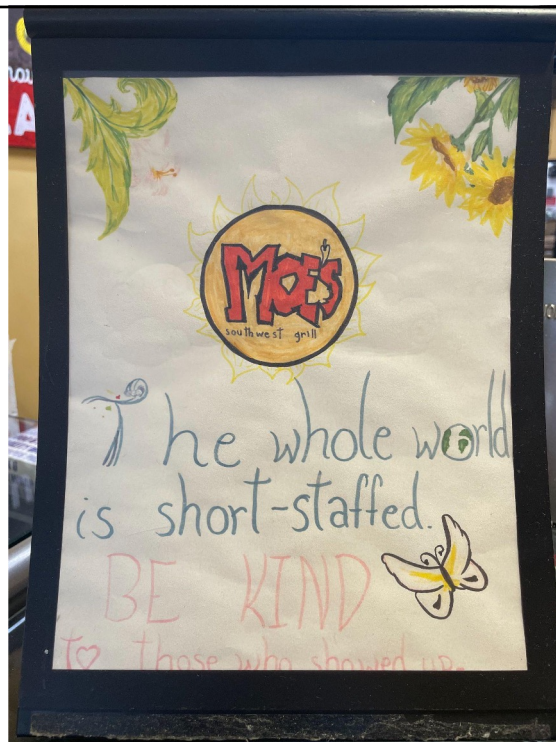 MOE'S
southwest grill
The whole world
is short-staffed.
BE KIND
to those who showed up.